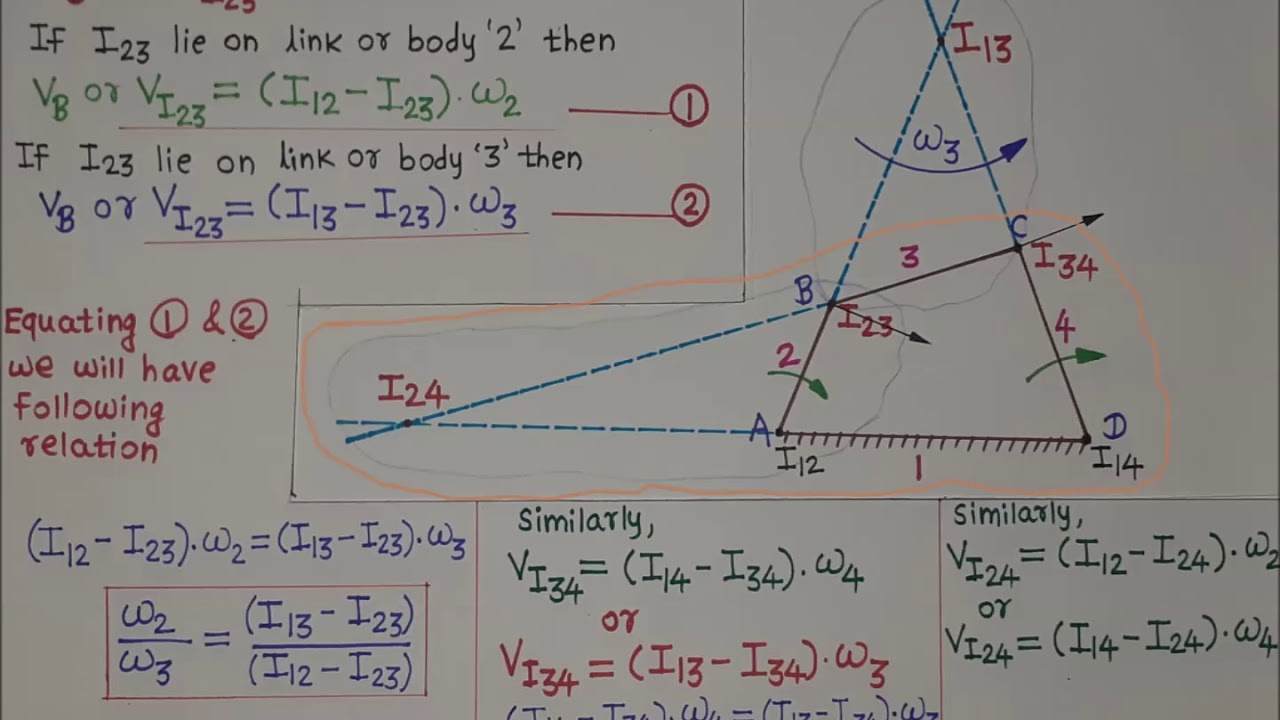 If I₂₃ lie on link or body '2' then
V_B or V_I₂₃ = (I₁₂ − I₂₃) · ω₂ ——— ①
If I₂₃ lie on link or body '3' then
V_B or V_I₂₃ = (I₁₃ − I₂₃) · ω₃ ——— ②
Equating ① & ②
we will have
following
relation
(I₁₂ − I₂₃) · ω₂ = (I₁₃ − I₂₃) · ω₃
ω₂/ω₃ = (I₁₃ − I₂₃)/(I₁₂ − I₂₃)
I₁₃
ω₃
C
3
I₃₄
B
I₂₃
4
2
I₂₄
A
D
I₁₂
1
I₁₄
Similarly,
V_I₃₄ = (I₁₄ − I₃₄) · ω₄
or
V_I₃₄ = (I₁₃ − I₃₄) · ω₃
Similarly,
V_I₂₄ = (I₁₂ − I₂₄) · ω₂
or
V_I₂₄ = (I₁₄ − I₂₄) · ω₄